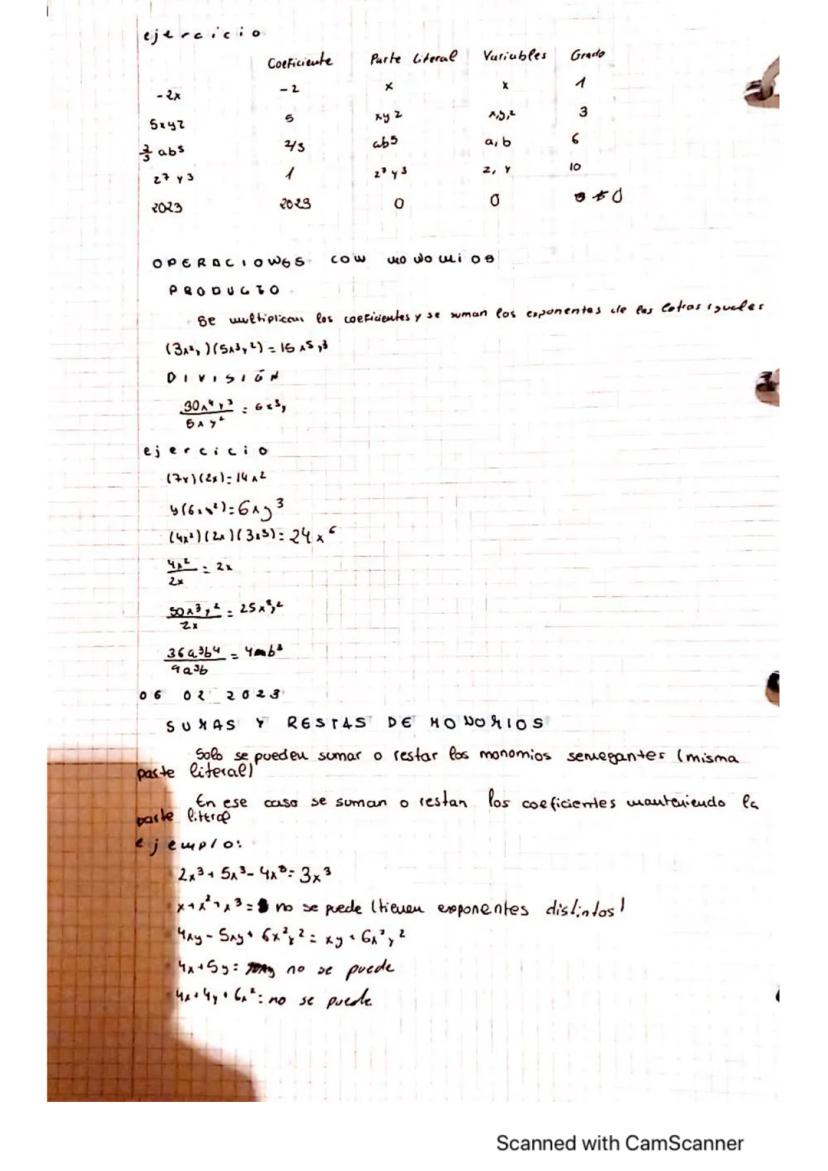 ejercicio
Coeficiente Parte literal Variables Grado
-2x -2 x x 1
5xyz 5 xyz x,y,z 3
2/3 ab⁵ 2/3 ab⁵ a, b 6
z⁷ y³ 1 z⁷ y³ z, y 10
2023 2023 0 0 0
OPERACIONES CON MONOMIOS
PRODUCTO
Se multiplican los coeficientes y se suman los exponentes de las letras iguales
(3x²y)(5x³y²) = 15x⁵y³
DIVISIÓN
30x⁴y³/5xy² = 6x³y
ejercicio
(7x)(2x) = 14x²
y(6xy²) = 6xy³
(4x²)(2x)(3x³) = 24x⁶
4x²/2x = 2x
50x³y²/2x = 25x²y²
36a³b⁴/9a³b = 4b³
06 02 2023
SUMAS Y RESTAS DE MONOMIOS
Solo se pueden sumar o restar los monomios semegantes (misma
parte literal)
En ese caso se suman o restan los coeficientes manteniendo la
parte literal
ejemplo:
2x³ + 5x³ - 4x³ = 3x³
x + x² + x³ = no se puede (tienen exponentes distintos)
4xy - 5xy + 6x²y² = xy + 6x²y²
4x + 5y = no se puede
4x + 4y + 6x² = no se puede
Scanned with CamScanner